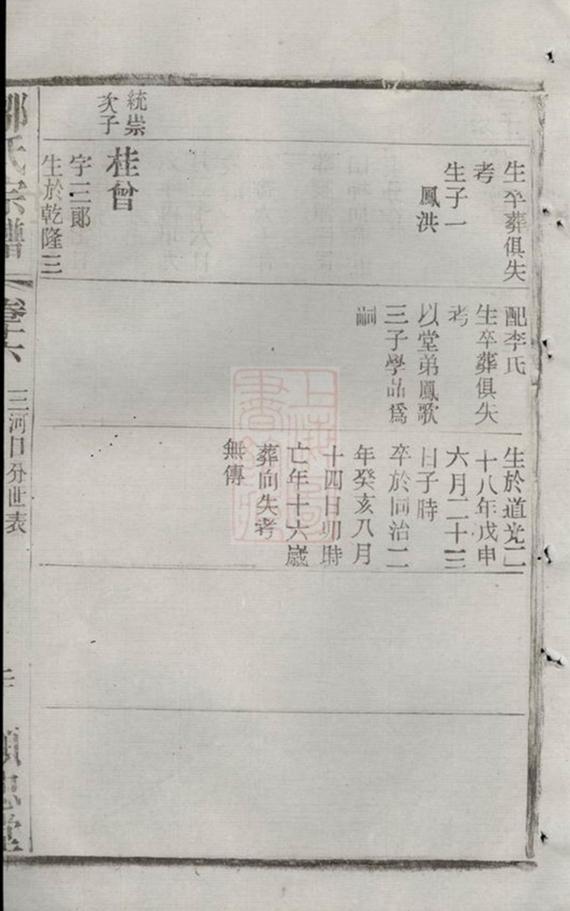 生卒葬俱失
考
生子一
鳳洪
配李氏
生卒葬俱失
考
以堂弟鳳歌
三子學品爲
嗣
生於道光二
十八年戊申
六月二十三
日子時
卒於同治二
年癸亥八月
十四日卯時
亡年十六歲
葬向失考
無傳
統崇
次子
桂曾
字三郎
生於乾隆三
氏宗譜
三河口分世表